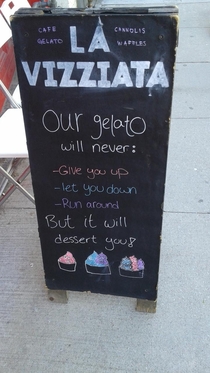 CAFE
GELATO
CANNOLIS
WAFFLES
LA
VIZZIATA
Our gelato
will never:
-Give you up
-let you down
-Run around
But it will
dessert you!